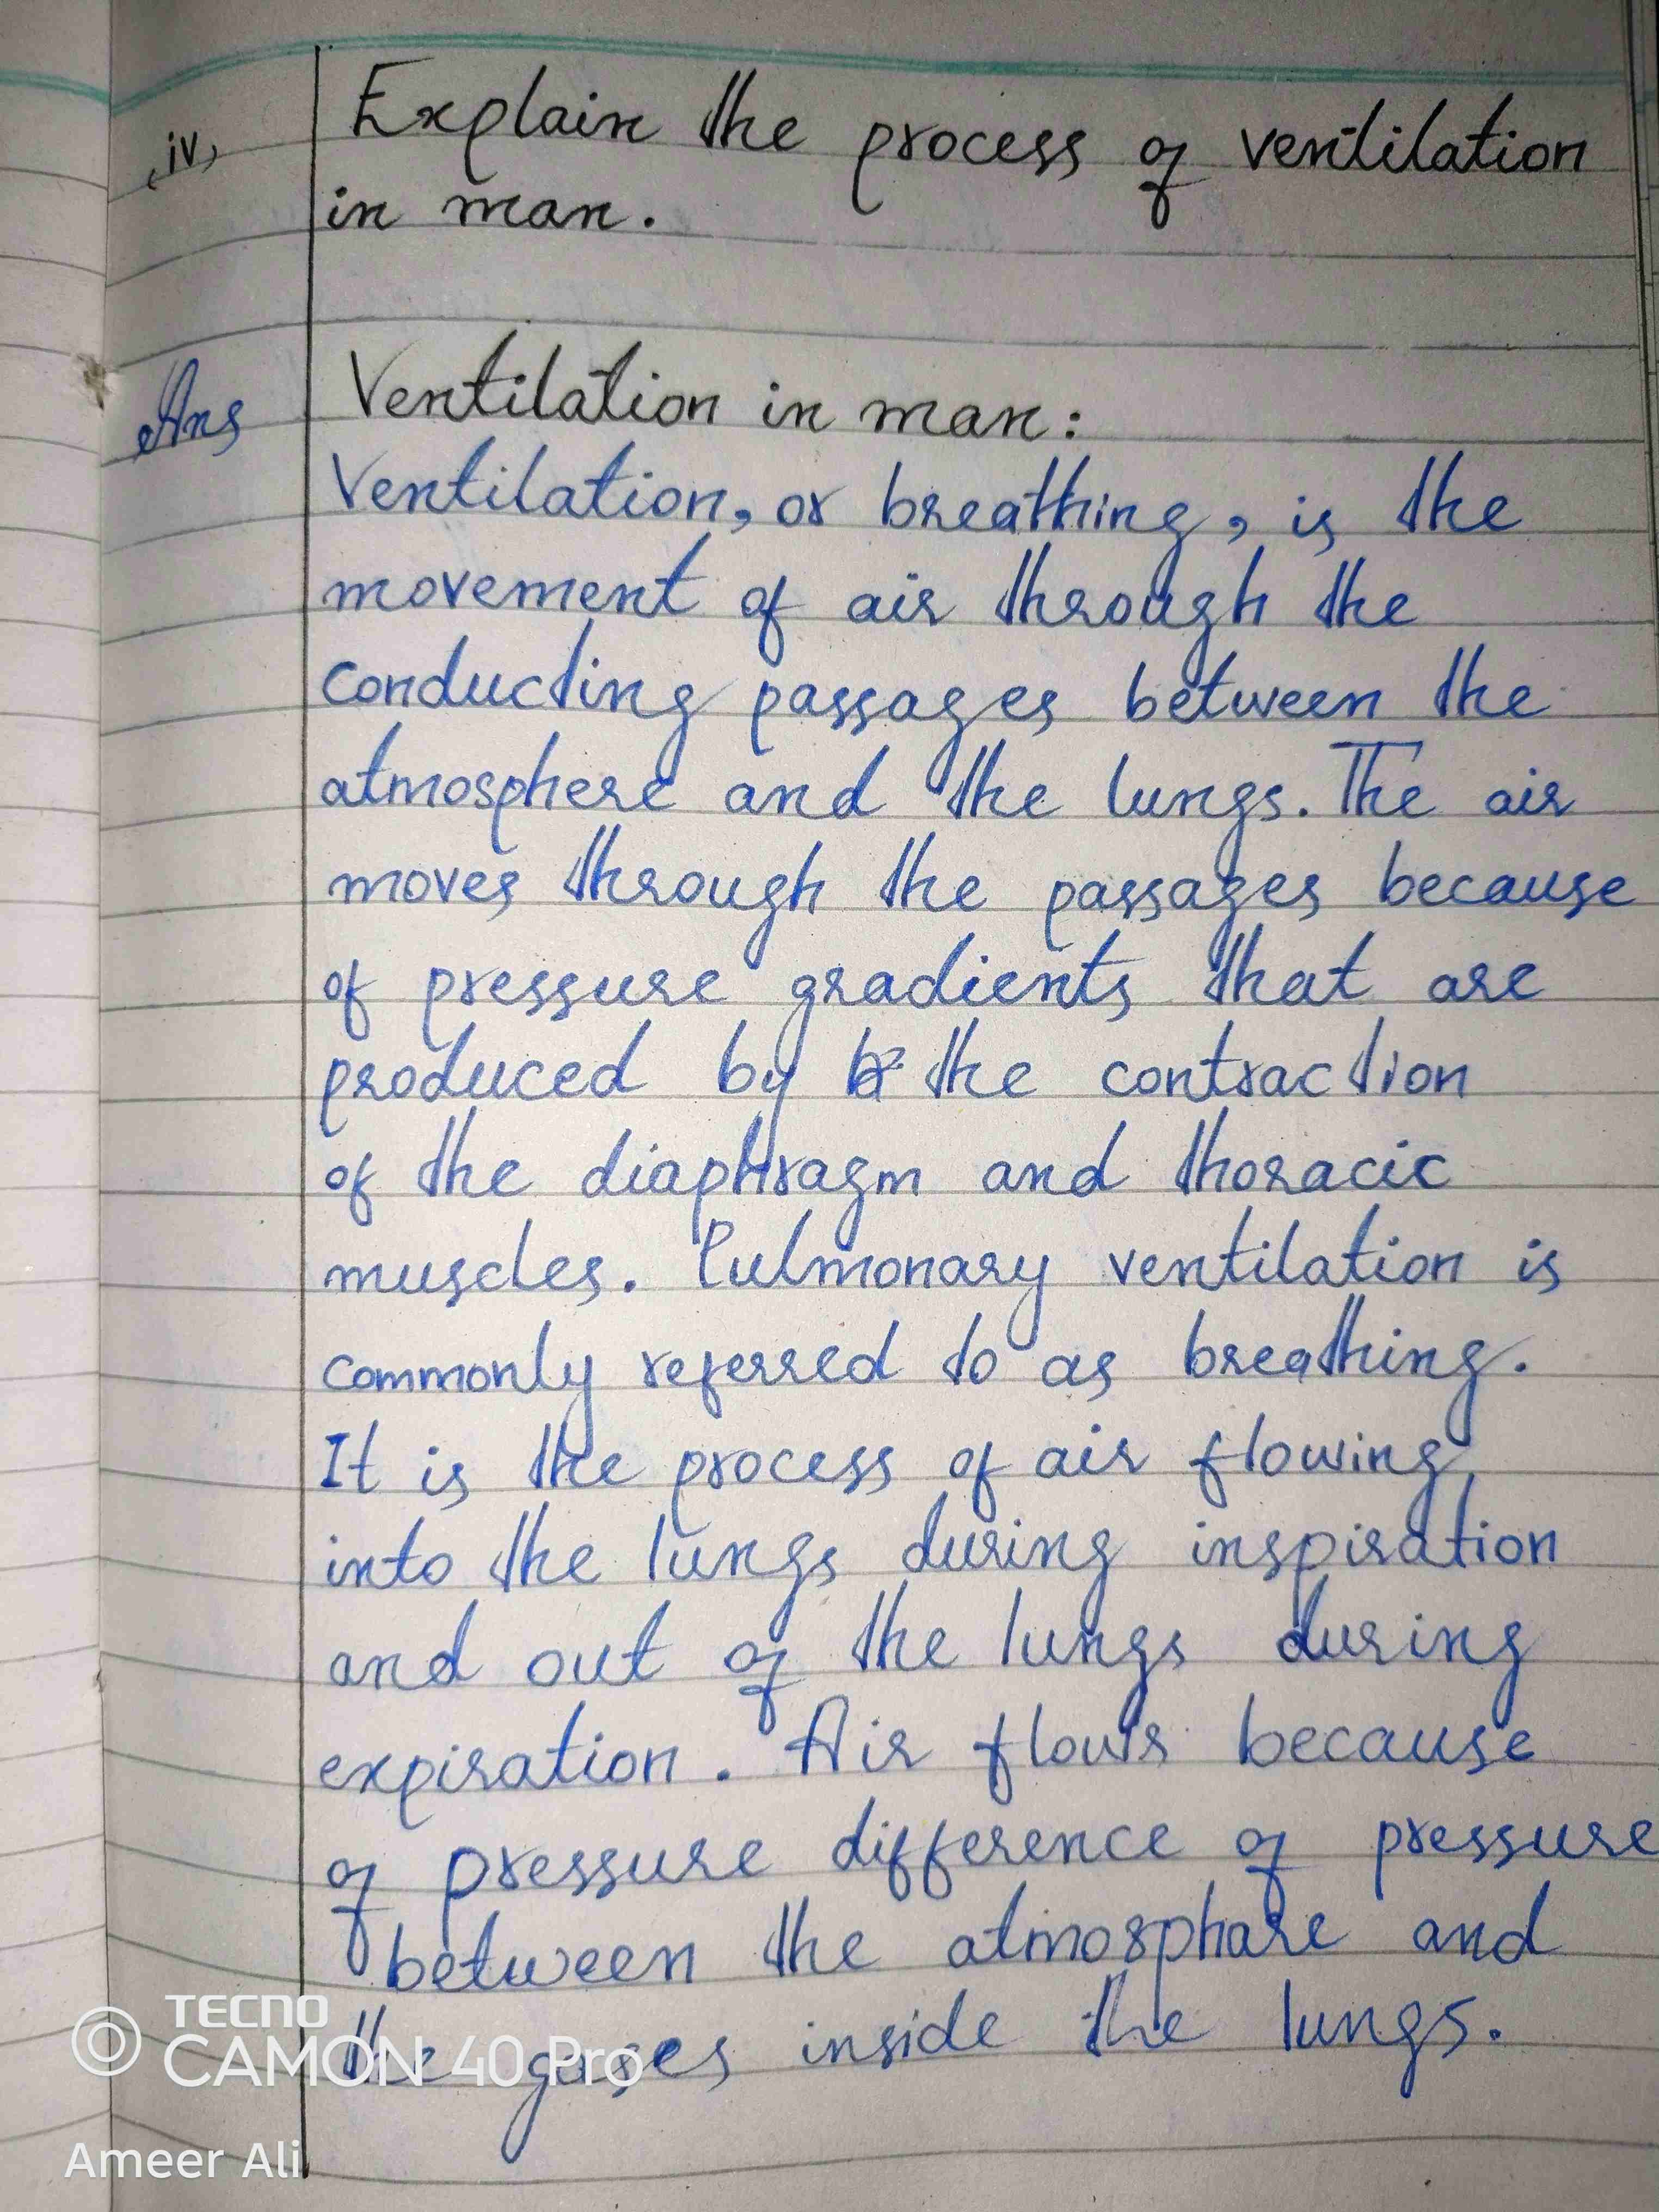 (iv) Explain the process of ventilation
in man.
Ans Ventilation in man:
Ventilation, or breathing, is the
movement of air through the
conducting passages between the
atmosphere and the lungs. The air
moves through the passages because
of pressure gradients that are
produced by the contraction
of the diaphragm and thoracic
muscles. Pulmonary ventilation is
commonly referred to as breathing.
It is the process of air flowing
into the lungs during inspiration
and out of the lungs during
expiration. Air flows because
of pressure difference of pressure
between the atmosphare and
the gases inside the lungs.
TECNO
CAMON 40 Pro
Ameer Ali